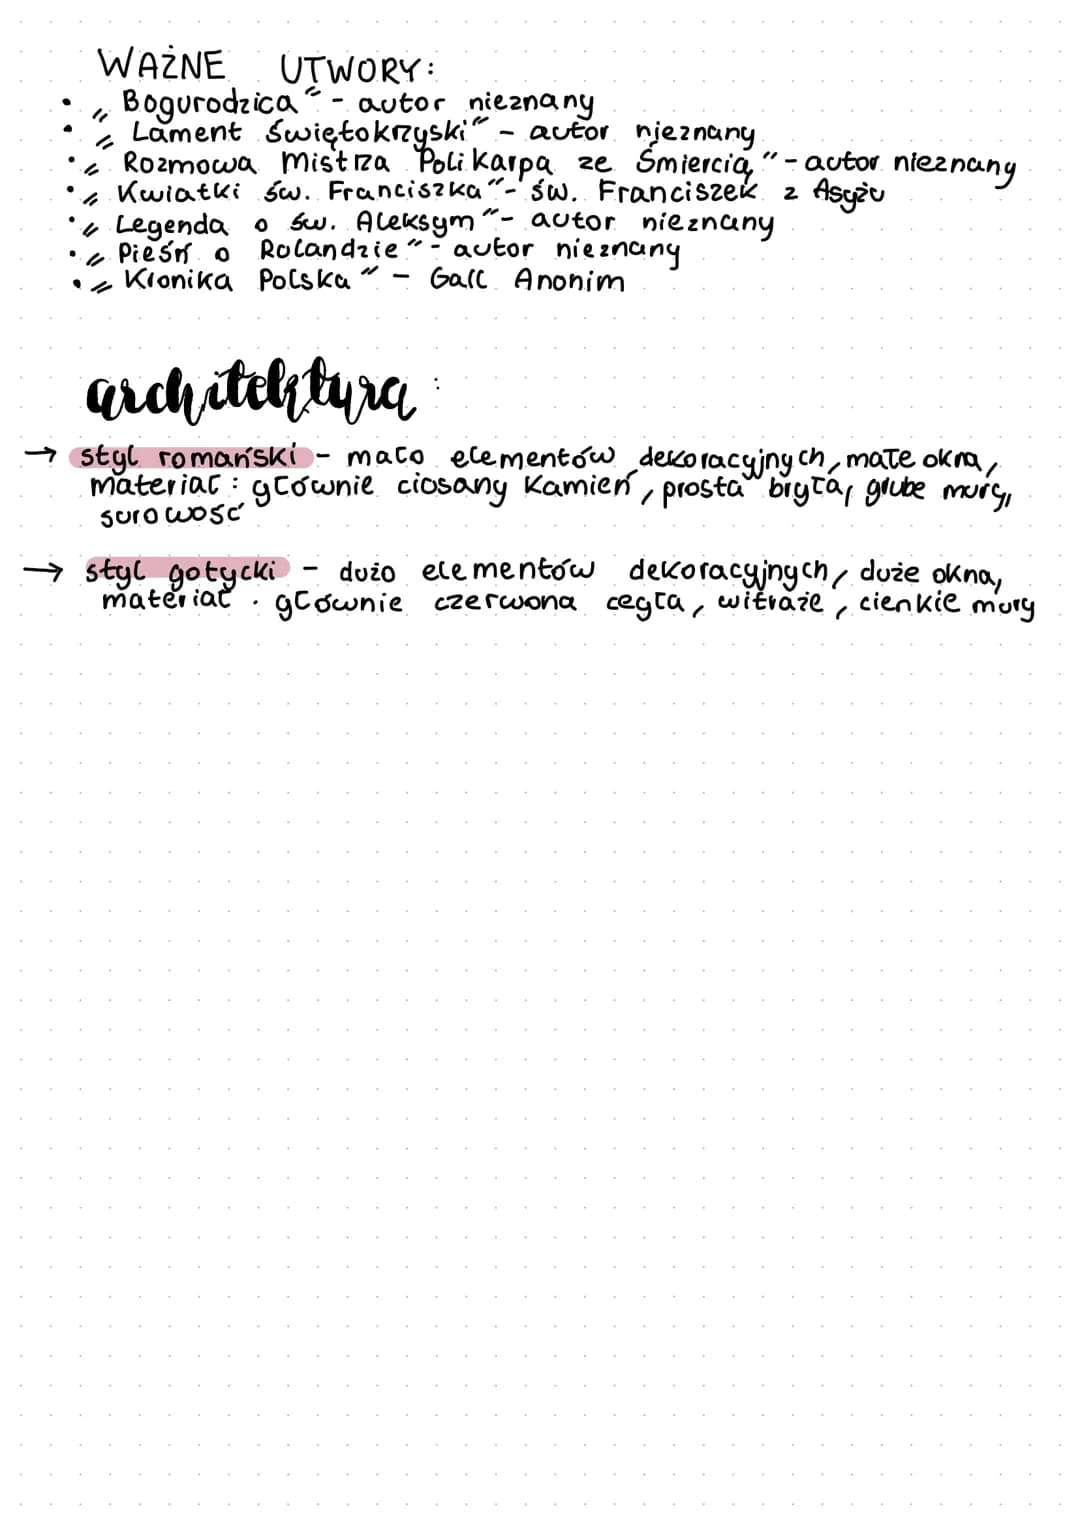 WAŻNE UTWORY:
• „Bogurodzica" - autor nieznany
• „Lament Świętokrzyski" - autor nieznany
• „Rozmowa Mistrza Polikarpa ze Śmiercią" - autor nieznany
• „Kwiatki św. Franciszka" - św. Franciszek z Asyżu
• „Legenda o św. Aleksym" - autor nieznany
• „Pieśń o Rolandzie" - autor nieznany
• „Kronika Polska" - Gall Anonim
architektura:
→ styl romański - mało elementów dekoracyjnych, małe okna,
materiał: głównie ciosany kamień, prosta bryła, grube mury,
surowość
→ styl gotycki - dużo elementów dekoracyjnych, duże okna,
materiał. głównie czerwona cegła, witraże, cienkie mury